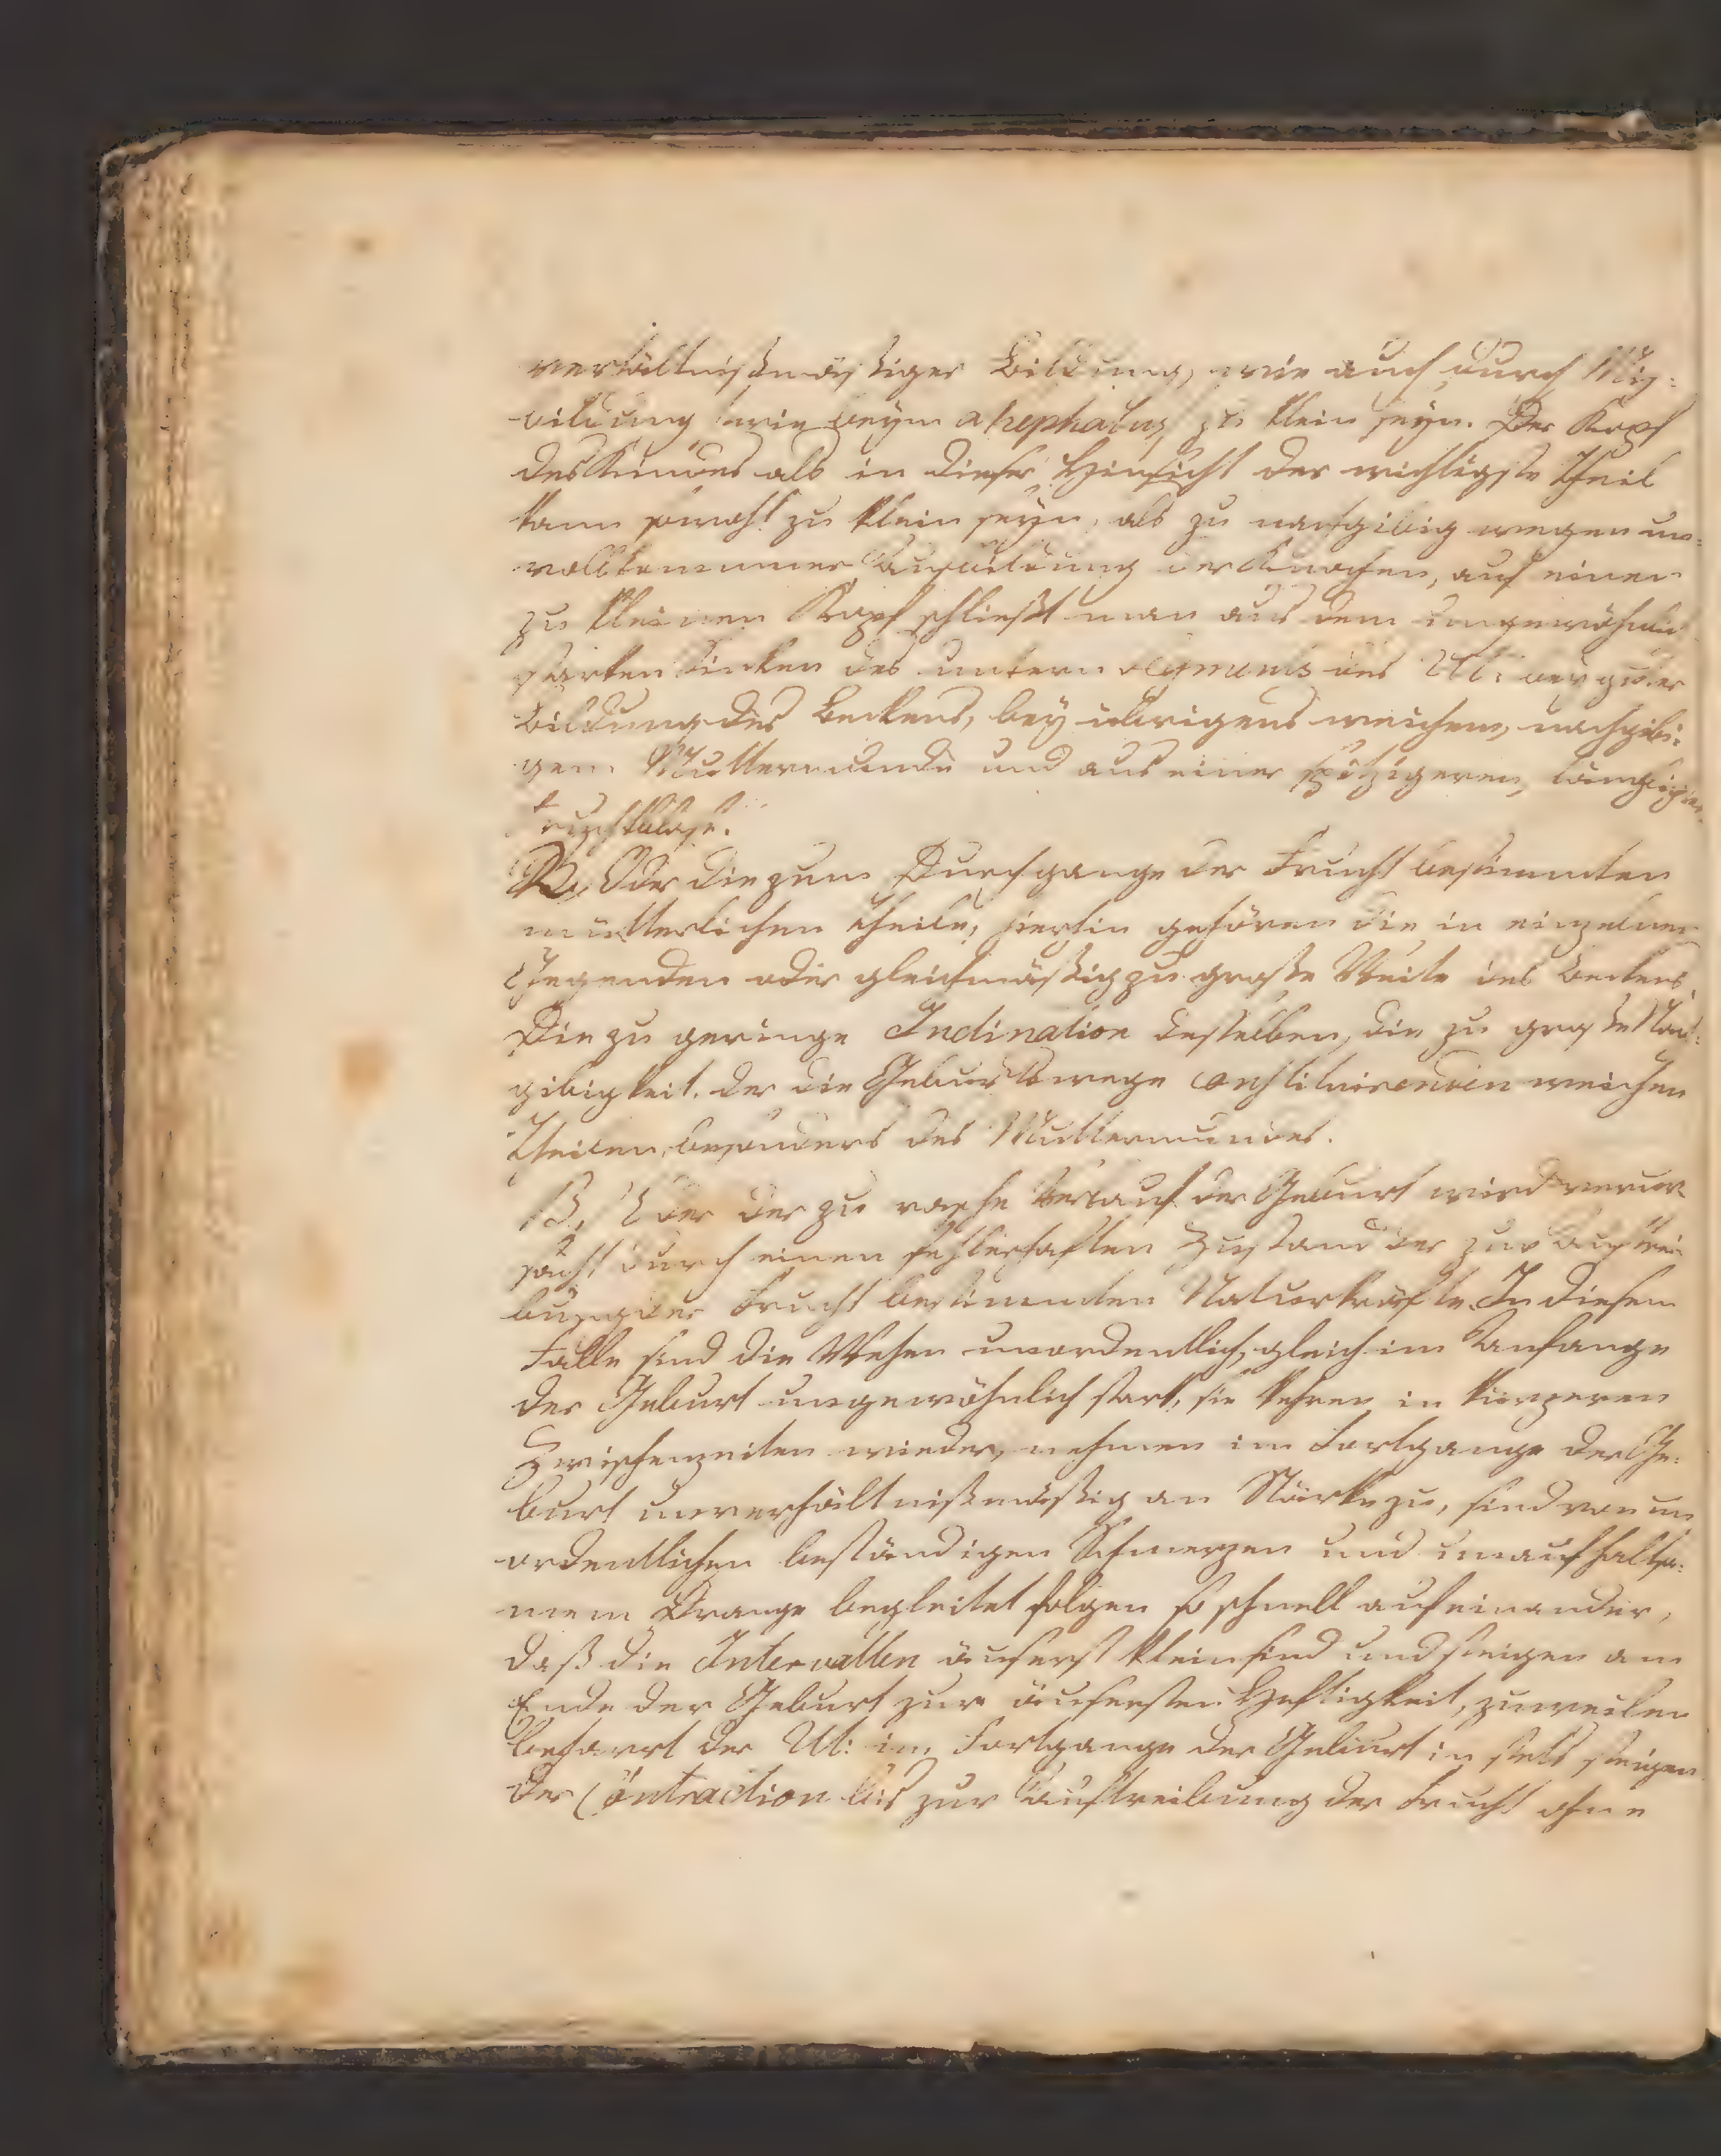 verhältnißmäßiger Bildung, wie auch durch Miß-
bildung wie beym akephalus, zu klein seyn. Der Kopf
des Kindes als in dieser Hinsicht der wichtigste Theil
kann sowohl zu klein seyn, als zu nachgibig wegen un-
vollkommner Ausbildung der Knochen, auf einen
zu kleinen Kopf schließt man aus dem ungewöhnlich
starken Sinken des untern segments des Ut: bey guter
Bildung des Beckens, bey übrigens weichem, nachgibi-
gem Muttermunde und aus einer spitzigeren, länglichen
Fruchtblase.
Oder die zum Durchgange der Frucht bestimmten
mütterlichen Theile, hierhin gehören die in einzelnen
Gegenden oder gleichmäßig zu große Weite des Beckens,
Die zu geringe Inclination desselben, die zu große Nach-
gibigkeit der die Geburtswege constituirenden weichen
Theilen, besonders des Muttermundes.
B, Oder der zu rasche Verlauf der Geburt wird verur-
sacht durch einen fehlerhaften Zustand der zur Austrei-
bung der Frucht bestimmten Naturkräfte. In diesem
Falle sind die Wehen unordentlich, gleich im Anfange
der Geburt ungewöhnlich stark, sie kehren in kürzeren
Zwischenzeiten wieder, nehmen im Fortgange der Ge-
burt unverhältnißmäßig an Stärke zu, sind von un
ordentlichen beständigen Schmerzen und unaufhaltsa-
mem Drange begleitet folgen so schnell aufeinander,
daß die Intervallen äuserst klein sind und steigen am
Ende der Geburt zur äusersten Heftigkeit, zuweilen
beharrt der Ut: im Fortgange der Geburt in stets steigen
der Contraction bis zur Austreibung der Frucht ohne